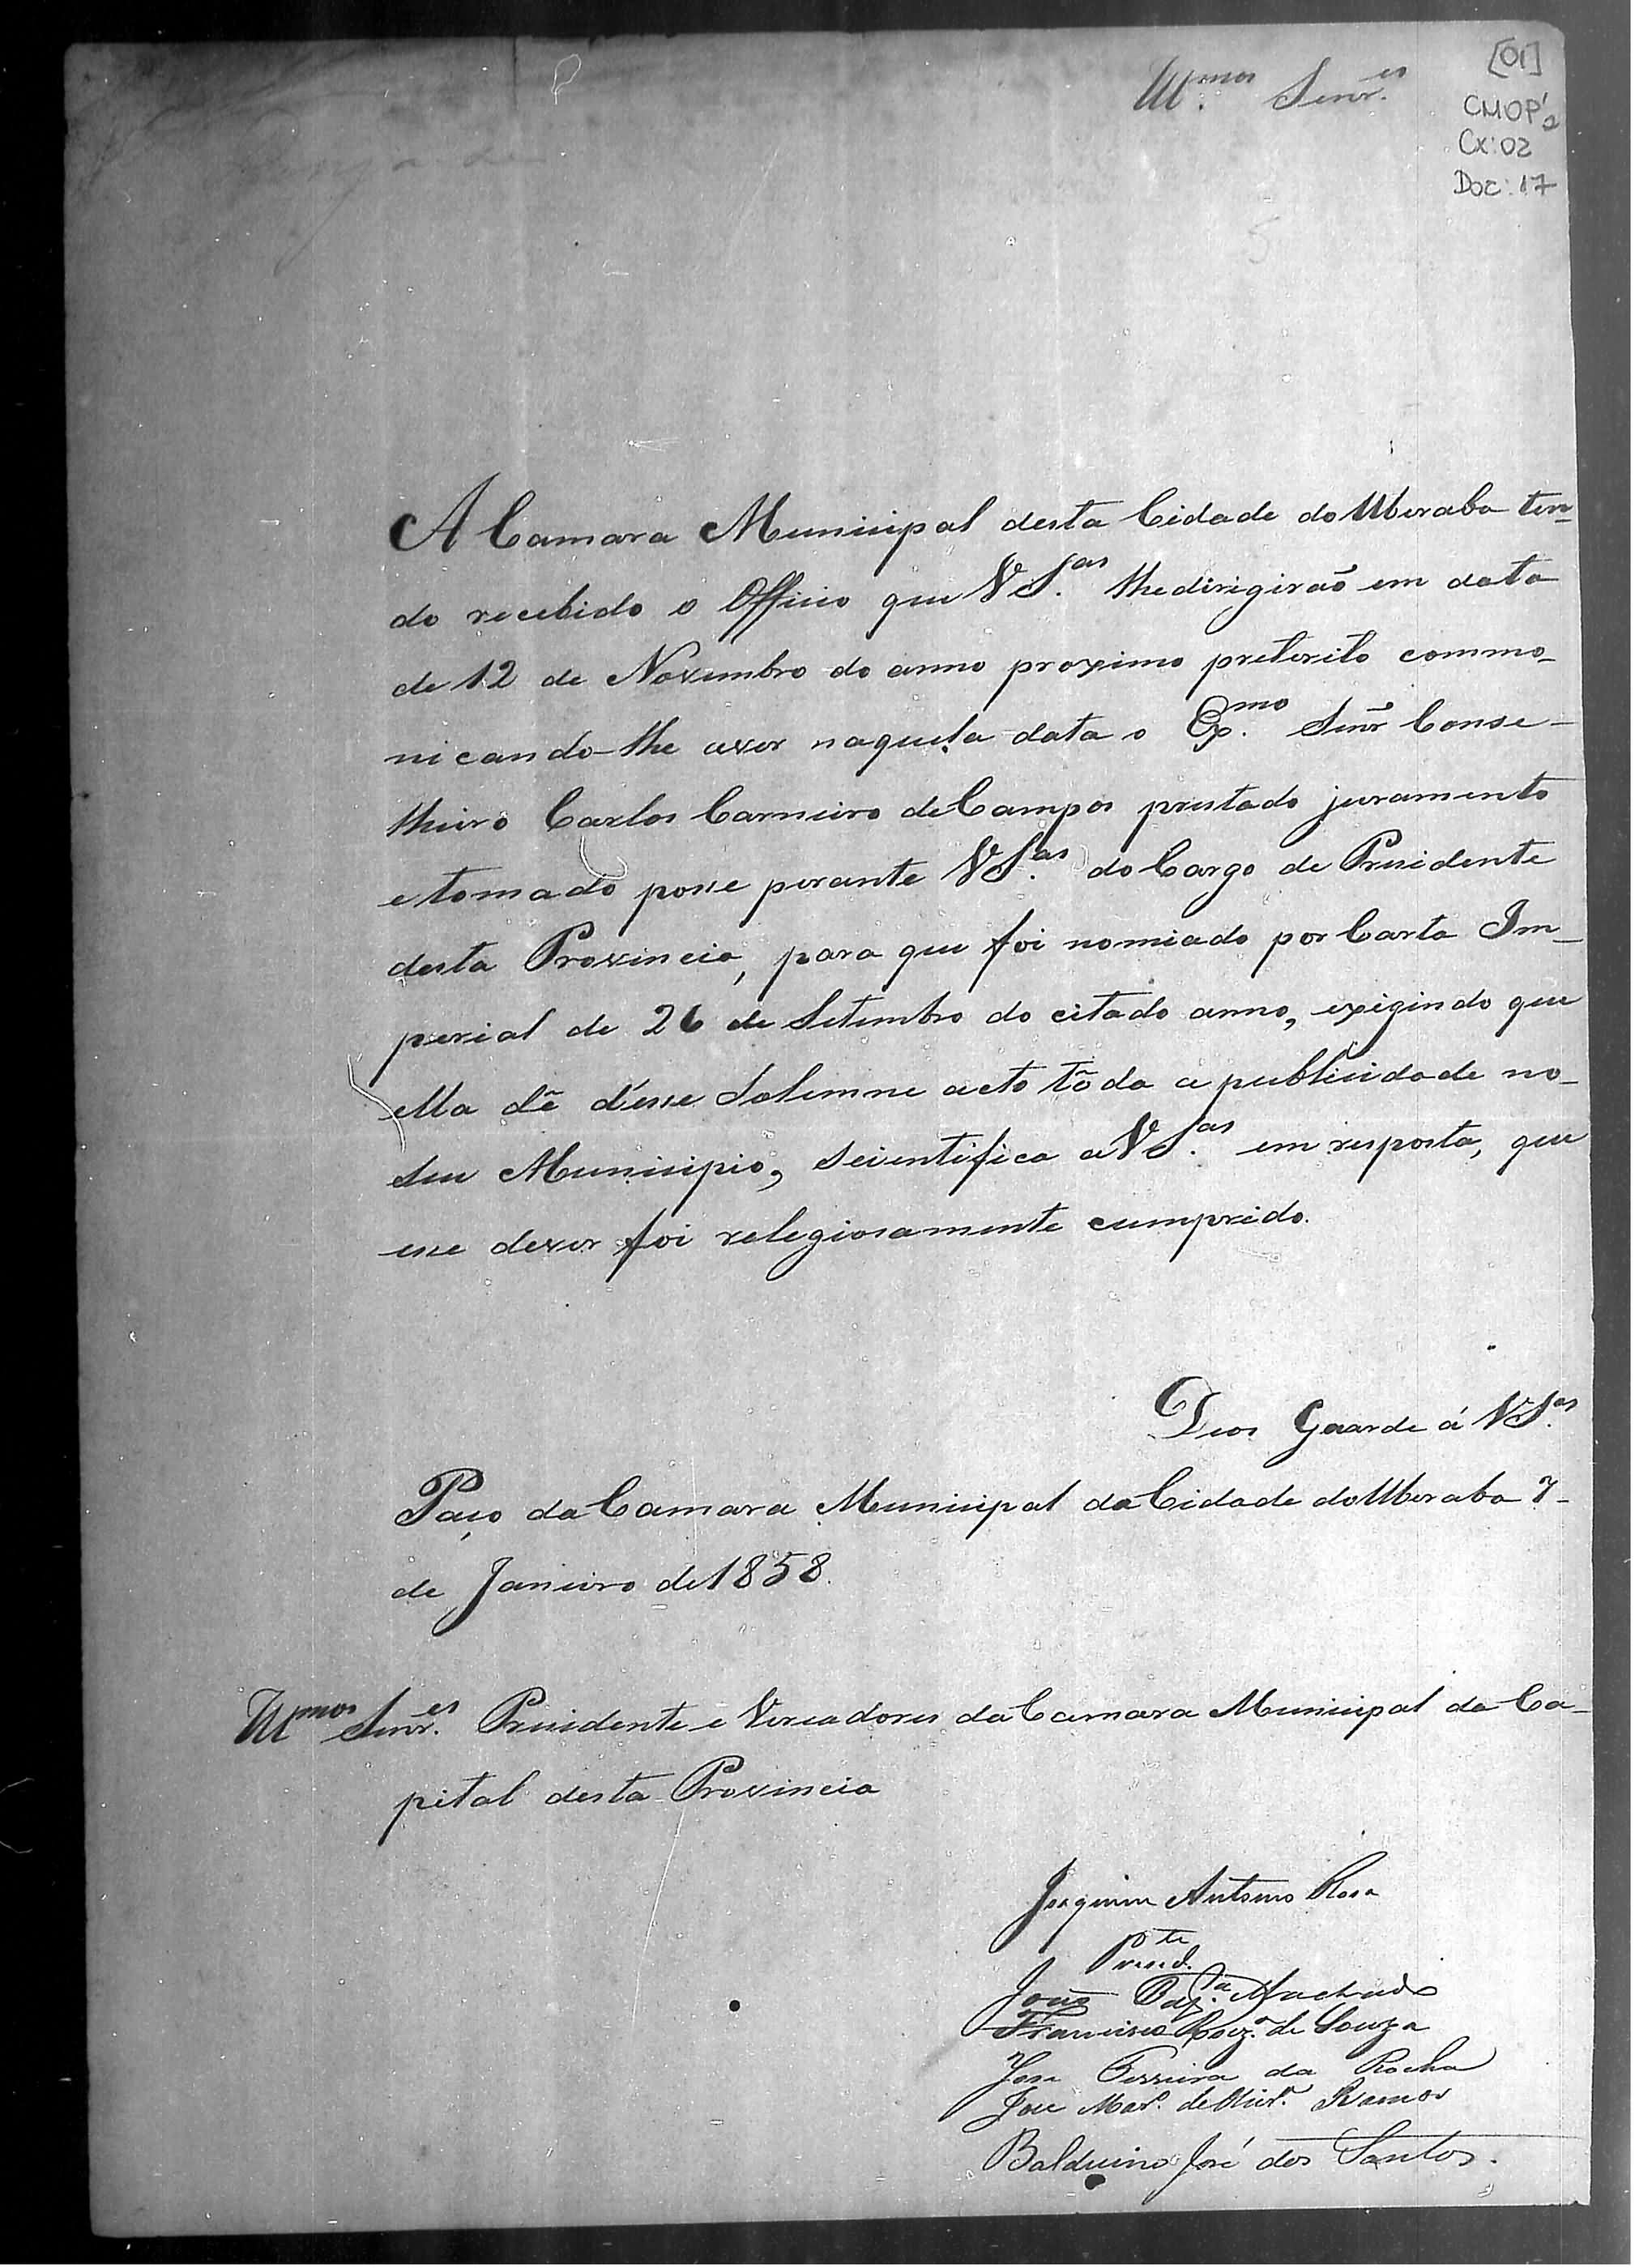 [01]
Ill.mos Senr.es
CMOP
Cx: 02
Doc: 17
A Camara Municipal desta Cidade do Uberaba ten-
do recebido o Officio que V S.as lhe dirigirão em data
de 12 de Novembro do anno proximo preterito commo-
nicando-lhe aver naquela data o Ex.mo Senr Conse-
lheiro Carlos Carneiro de Campos prestado juramento
e tomado posse perante V S.as do Cargo de Presidente
desta Provincia, para que foi nomiado por Carta Im-
perial de 26 de Setembro do citado anno, exigindo que
ella dê d'esse Solemne acto tõda a publicidade no
seu Municipio, scientifica a V S.as em resposta, que
esse dever foi relegiosamente cumprido.
Deos Guarde á V S.as
Paço da Camara Municipal da Cidade do Uberaba 7
de Janeiro de 1858.
Ill.mos Senr.es Presidente e Vereadores da Camara Municipal da Ca-
pital desta Provincia
Joaquim Antonio Rosa
Presid.te
João Bap.ta Machado
Francisco Roiz. de Souza
José Ferreira da Rocha
José Mar. de Ramos
Balduino José dos Santos.